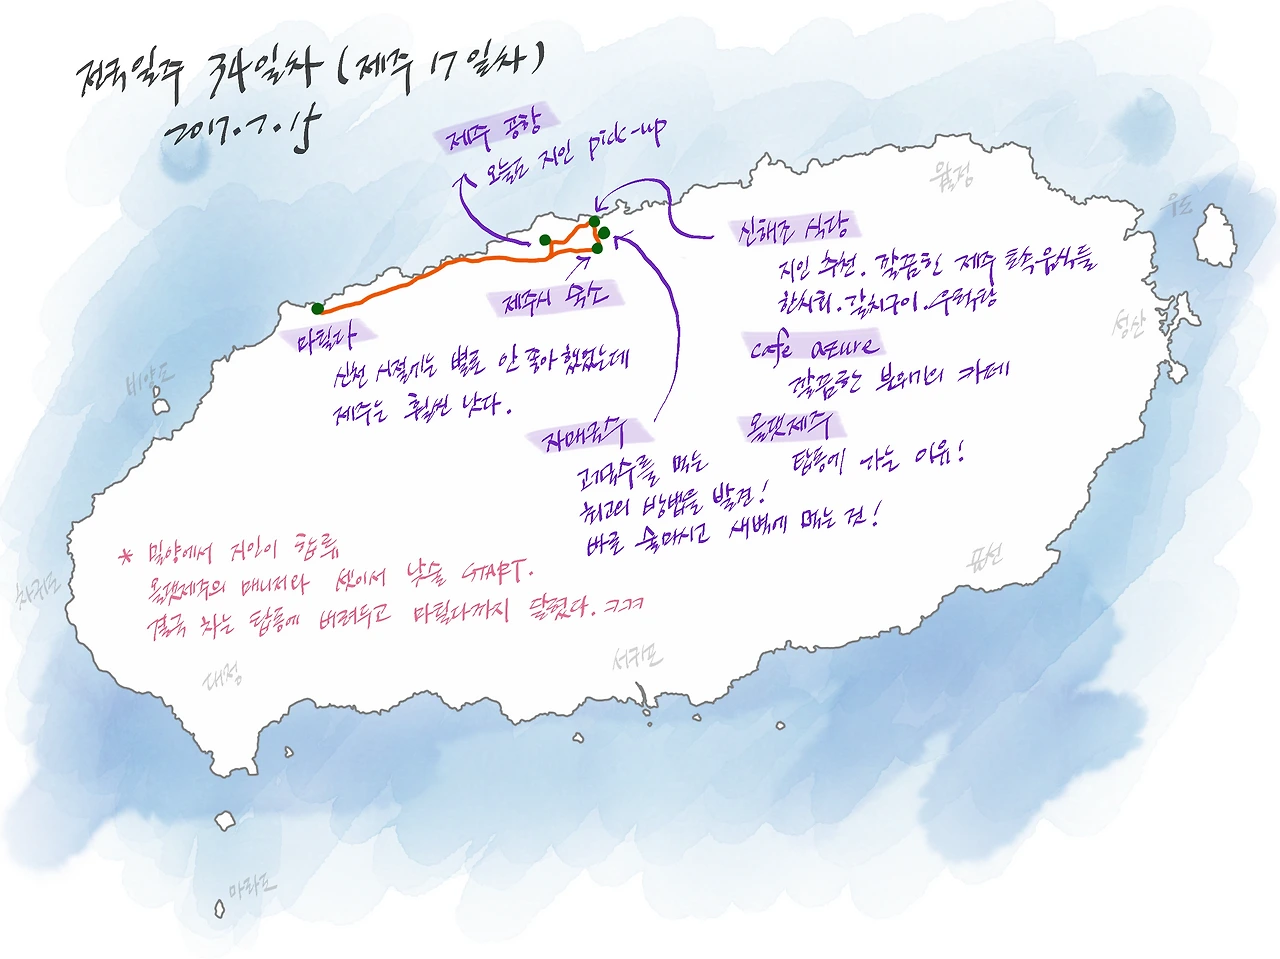 전국일주 34일차 (제주 17일차)
2017.7.15
제주 공항
오늘도 지인 pick-up
월정
우도
신해조 식당
지인 추천. 깔끔한 제주 토속음식들
한치회. 갈치구이. 우럭탕
제주시 숙소
성산
마틸다
신천 시절에는 별로 안 좋아했었는데
제주는 훨씬 낫다.
cafe azure
깔끔한 분위기의 카페
비양도
올댓제주
탑동에 가는 이유!
자매국수
고기국수를 먹는
최고의 방법을 발견!
바로 술마시고 새벽에 먹는 것!
* 밀양에서 지인이 합류
올댓제주의 매니저와 셋이서 낮술 START.
결국 차는 탑동에 버려두고 마틸다까지 달렸다. ㅋㅋㅋ
차귀도
표선
대정
서귀포
마라도